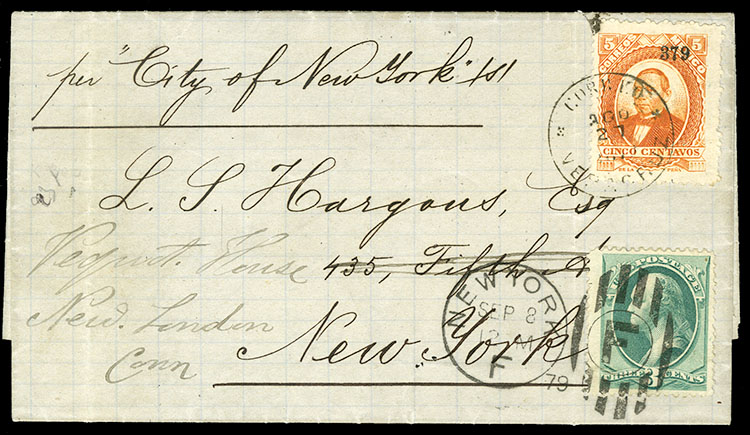 5 CORREOS MEXICO 5
379
per "City of New York" SS
CORREO
AGO
27
VERACRUZ
CINCO CENTAVOS
L. S. Hargous, Esq
Pequot House 435, Fifth Av
New London
Conn
New York
NEW YORK
SEP 8
12 M
F
79
U.S. POSTAGE
F
THREE CENTS